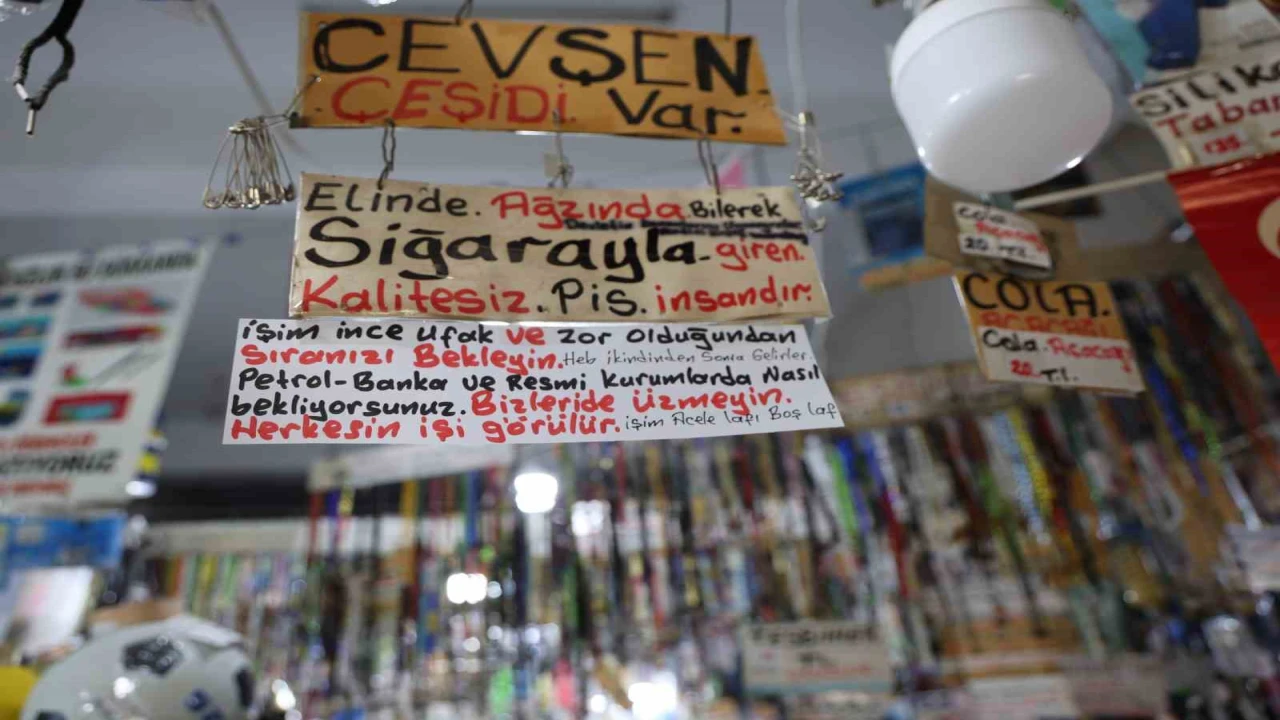 CEVŞEN.
ÇEŞİDİ. Var.
Elinde. Ağzında Bilerek
Siğarayla-giren.
Kalitesiz. Pis. insandır.
işim ince ufak ve zor olduğundan
Sıranızı Bekleyin. Heb ikindinden Sonra Gelirler.
Petrol-Banka ve Resmi Kurumlarda Nasıl
bekliyorsunuz. Bizleride Üzmeyin.
Herkesin işi görülür. işim Acele lafı Boş laf
Silik
Taban
Cola.
20
COLA.
Cola. Açacağı
20. T.L.